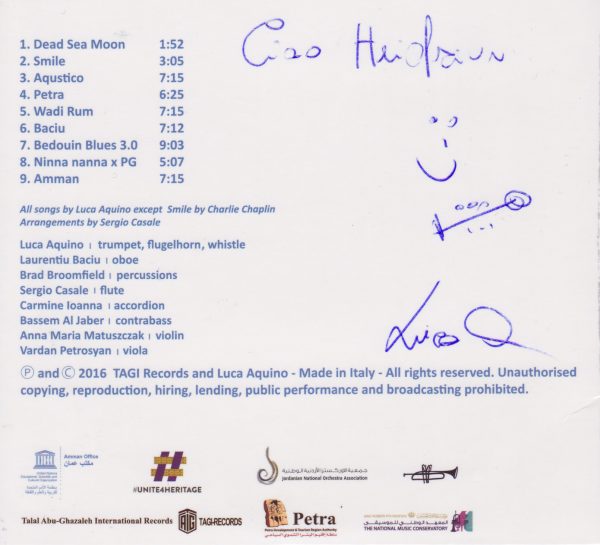 Ciao Heidrun
1. Dead Sea Moon 1:52
2. Smile 3:05
3. Aqustico 7:15
4. Petra 6:25
5. Wadi Rum 7:15
6. Baciu 7:12
7. Bedouin Blues 3.0 9:03
8. Ninna nanna x PG 5:07
9. Amman 7:15
All songs by Luca Aquino except Smile by Charlie Chaplin
Arrangements by Sergio Casale
Luca Aquino | trumpet, flugelhorn, whistle
Laurentiu Baciu | oboe
Brad Broomfield | percussions
Sergio Casale | flute
Carmine Ioanna | accordion
Bassem Al Jaber | contrabass
Anna Maria Matuszczak | violin
Vardan Petrosyan | viola
Luca
Ⓟ and © 2016 TAGI Records and Luca Aquino - Made in Italy - All rights reserved. Unauthorised
copying, reproduction, hiring, lending, public performance and broadcasting prohibited.
Amman Office
مكتب عمان
#UNITE4HERITAGE
جمعية الاوركسترا الأردنية الوطنية
Jordanian National Orchestra Association
Talal Abu-Ghazaleh International Records
TAGI-RECORDS
Petra
Petra Development & Tourism Region Authority
المعهد الوطني للموسيقى
THE NATIONAL MUSIC CONSERVATORY